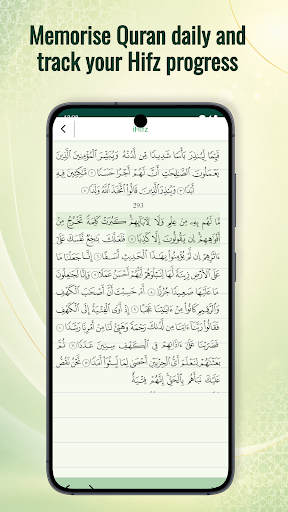 Memorise Quran daily and
track your Hifz progress
iHifz
قَيِّمًا لِّيُنذِرَ بَأْسًا شَدِيدًا مِّن لَّدُنْهُ وَيُبَشِّرَ الْمُؤْمِنِينَ الَّذِينَ
يَعْمَلُونَ الصَّٰلِحَٰتِ أَنَّ لَهُمْ أَجْرًا حَسَنًا ۝ مَّٰكِثِينَ فِيهِ
أَبَدًا ۝ وَيُنذِرَ الَّذِينَ قَالُوا اتَّخَذَ اللَّهُ وَلَدًا ۝
293
مَّا لَهُم بِهِ مِنْ عِلْمٍ وَلَا لِآبَائِهِمْ كَبُرَتْ كَلِمَةً تَخْرُجُ مِنْ
أَفْوَٰهِهِمْ إِن يَقُولُونَ إِلَّا كَذِبًا ۝ فَلَعَلَّكَ بَٰخِعٌ نَّفْسَكَ عَلَىٰ
ءَاثَٰرِهِمْ إِن لَّمْ يُؤْمِنُوا بِهَٰذَا الْحَدِيثِ أَسَفًا ۝ إِنَّا جَعَلْنَا مَا
عَلَى الْأَرْضِ زِينَةً لَّهَا لِنَبْلُوَهُمْ أَيُّهُمْ أَحْسَنُ عَمَلًا ۝ وَإِنَّا لَجَٰعِلُونَ
مَا عَلَيْهَا صَعِيدًا جُرُزًا ۝ أَمْ حَسِبْتَ أَنَّ أَصْحَٰبَ الْكَهْفِ
وَالرَّقِيمِ كَانُوا مِنْ ءَايَٰتِنَا عَجَبًا ۝ إِذْ أَوَى الْفِتْيَةُ إِلَى الْكَهْفِ
فَقَالُوا رَبَّنَا ءَاتِنَا مِن لَّدُنكَ رَحْمَةً وَهَيِّئْ لَنَا مِنْ أَمْرِنَا رَشَدًا ۝
فَضَرَبْنَا عَلَىٰ ءَاذَانِهِمْ فِي الْكَهْفِ سِنِينَ عَدَدًا ۝ ثُمَّ
بَعَثْنَٰهُمْ لِنَعْلَمَ أَيُّ الْحِزْبَيْنِ أَحْصَىٰ لِمَا لَبِثُوا أَمَدًا ۝ نَّحْنُ نَقُصُّ
عَلَيْكَ نَبَأَهُم بِالْحَقِّ إِنَّهُمْ فِتْيَةٌ